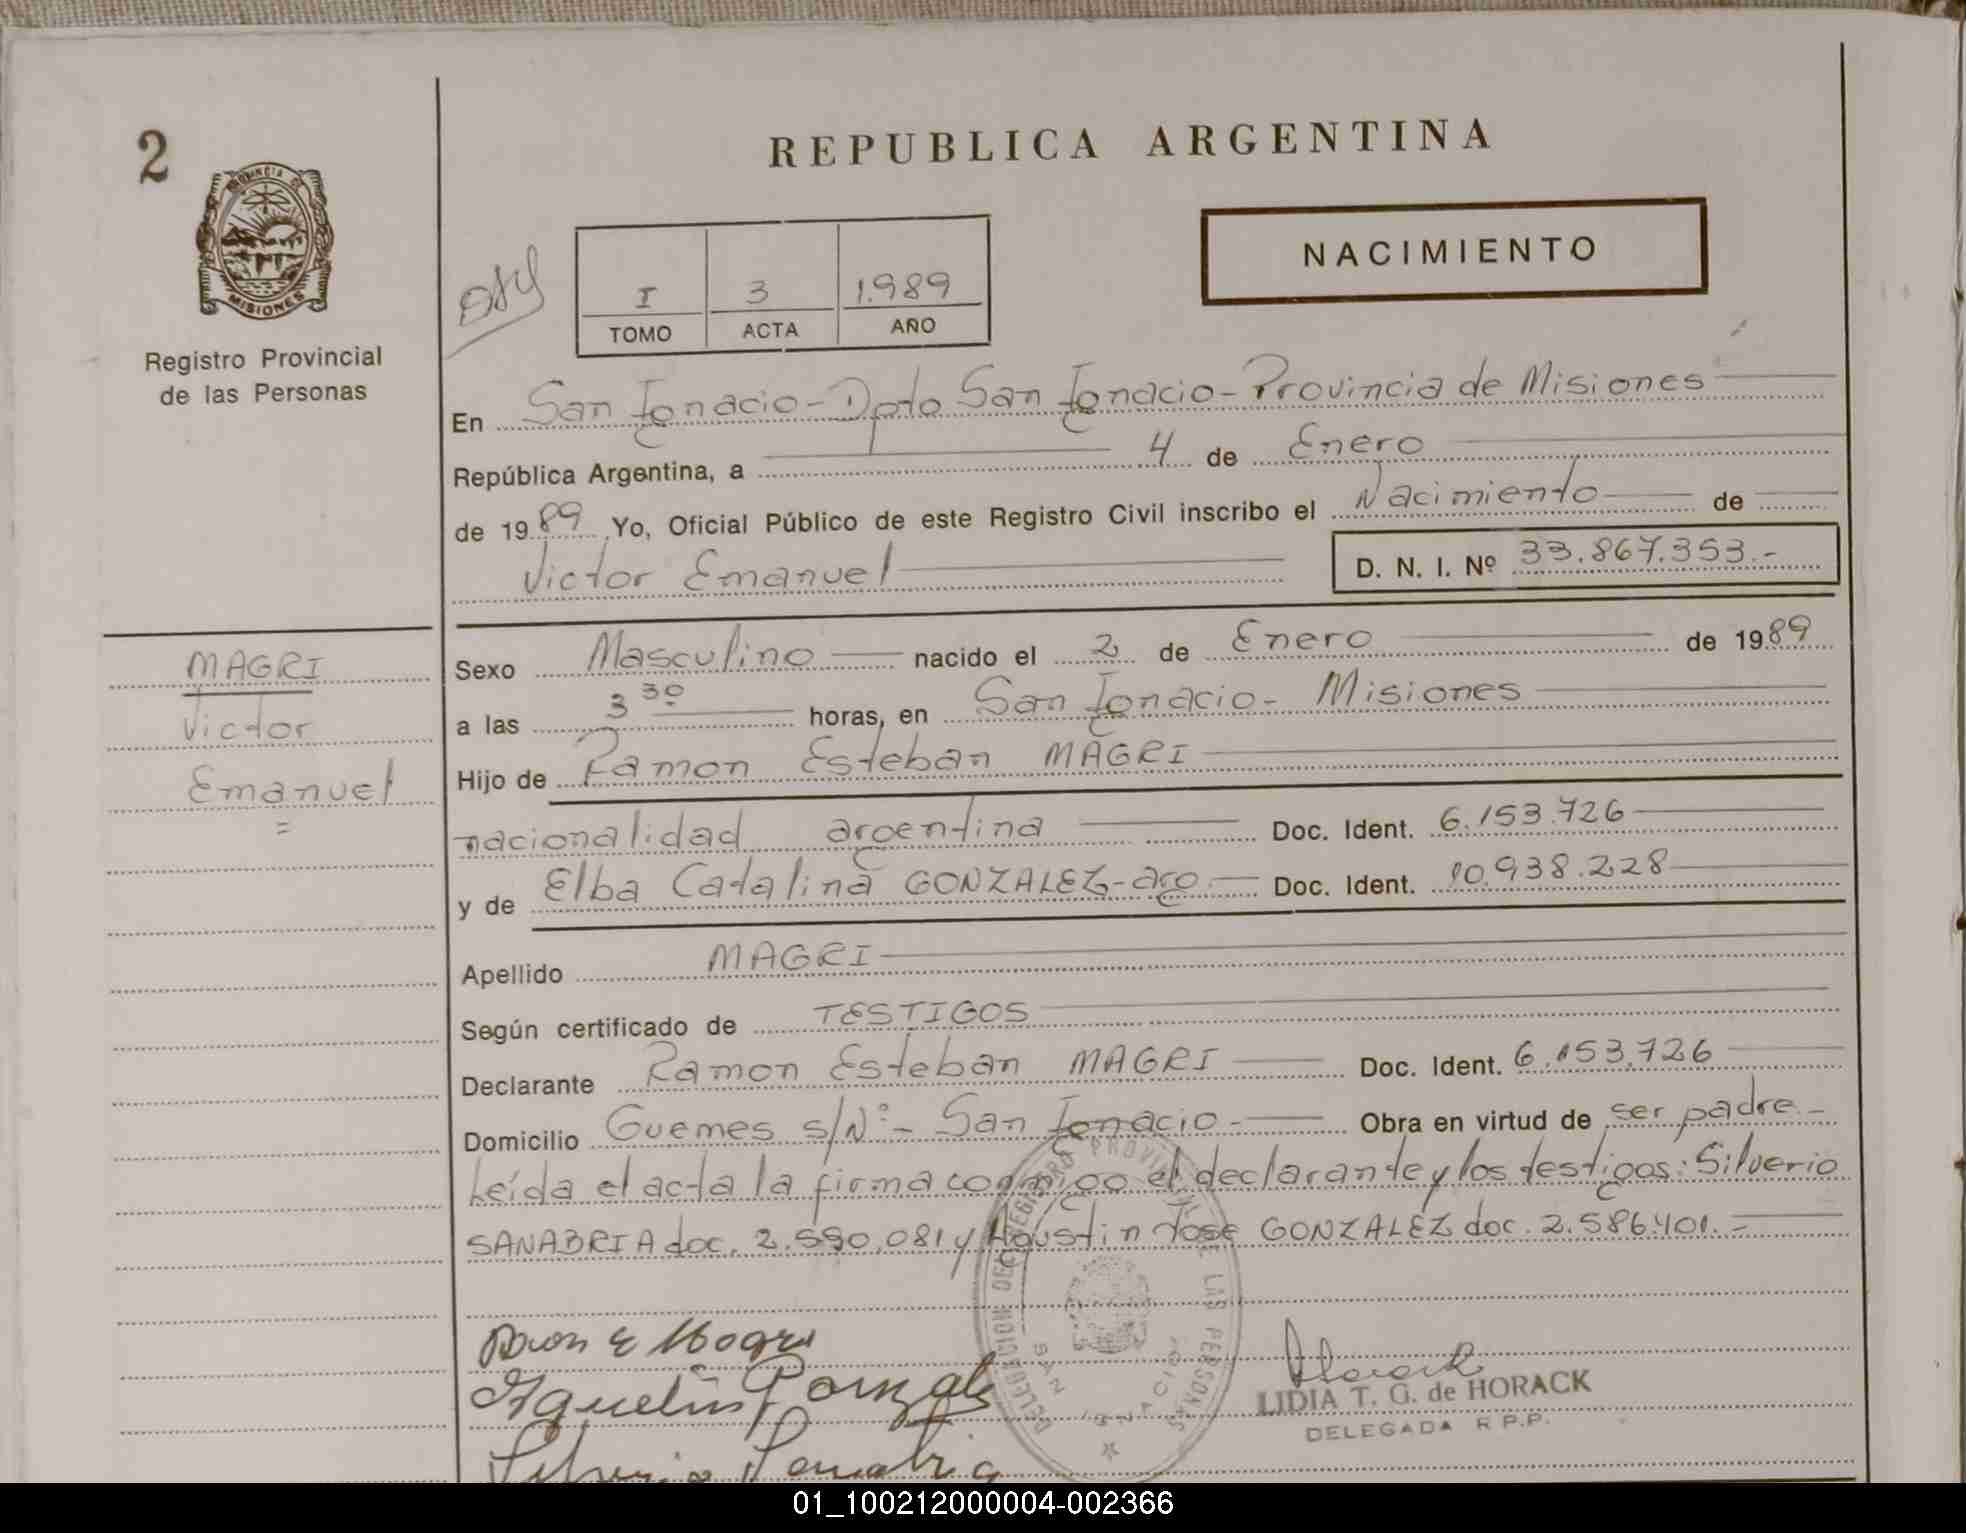 2
REPUBLICA ARGENTINA
PROVINCIA DE
MISIONES
Registro Provincial
de las Personas
I 3 1.989
TOMO ACTA AÑO
NACIMIENTO
En San Ignacio - Dpto San Ignacio - Provincia de Misiones
República Argentina, a 4 de Enero
de 1989 Yo, Oficial Público de este Registro Civil inscribo el Nacimiento de
Victor Emanuel D. N. I. Nº 33.867.353.-
MAGRI
Victor
Emanuel
=
Sexo Masculino nacido el 2 de Enero de 1989
a las 3 30 horas, en San Ignacio - Misiones
Hijo de Ramon Esteban MAGRI
nacionalidad argentina Doc. Ident. 6.153.726
y de Elba Catalina GONZALEZ - arg. Doc. Ident. 10.938.228
Apellido MAGRI
Según certificado de TESTIGOS
Declarante Ramon Esteban MAGRI Doc. Ident. 6.153.726
Domicilio Guemes s/Nº - San Ignacio - Obra en virtud de ser padre -
Leída el acta la firma conmigo el declarante y los testigos: Silverio
SANABRIA doc. 2.590.081 y Agustin Jose GONZALEZ doc. 2.586.401. -
DELEGACION DEL REGISTRO PROVINCIAL DE LAS PERSONAS
SAN IGNACIO
LIDIA T. G. de HORACK
DELEGADA R.P.P.
01_100212000004-002366